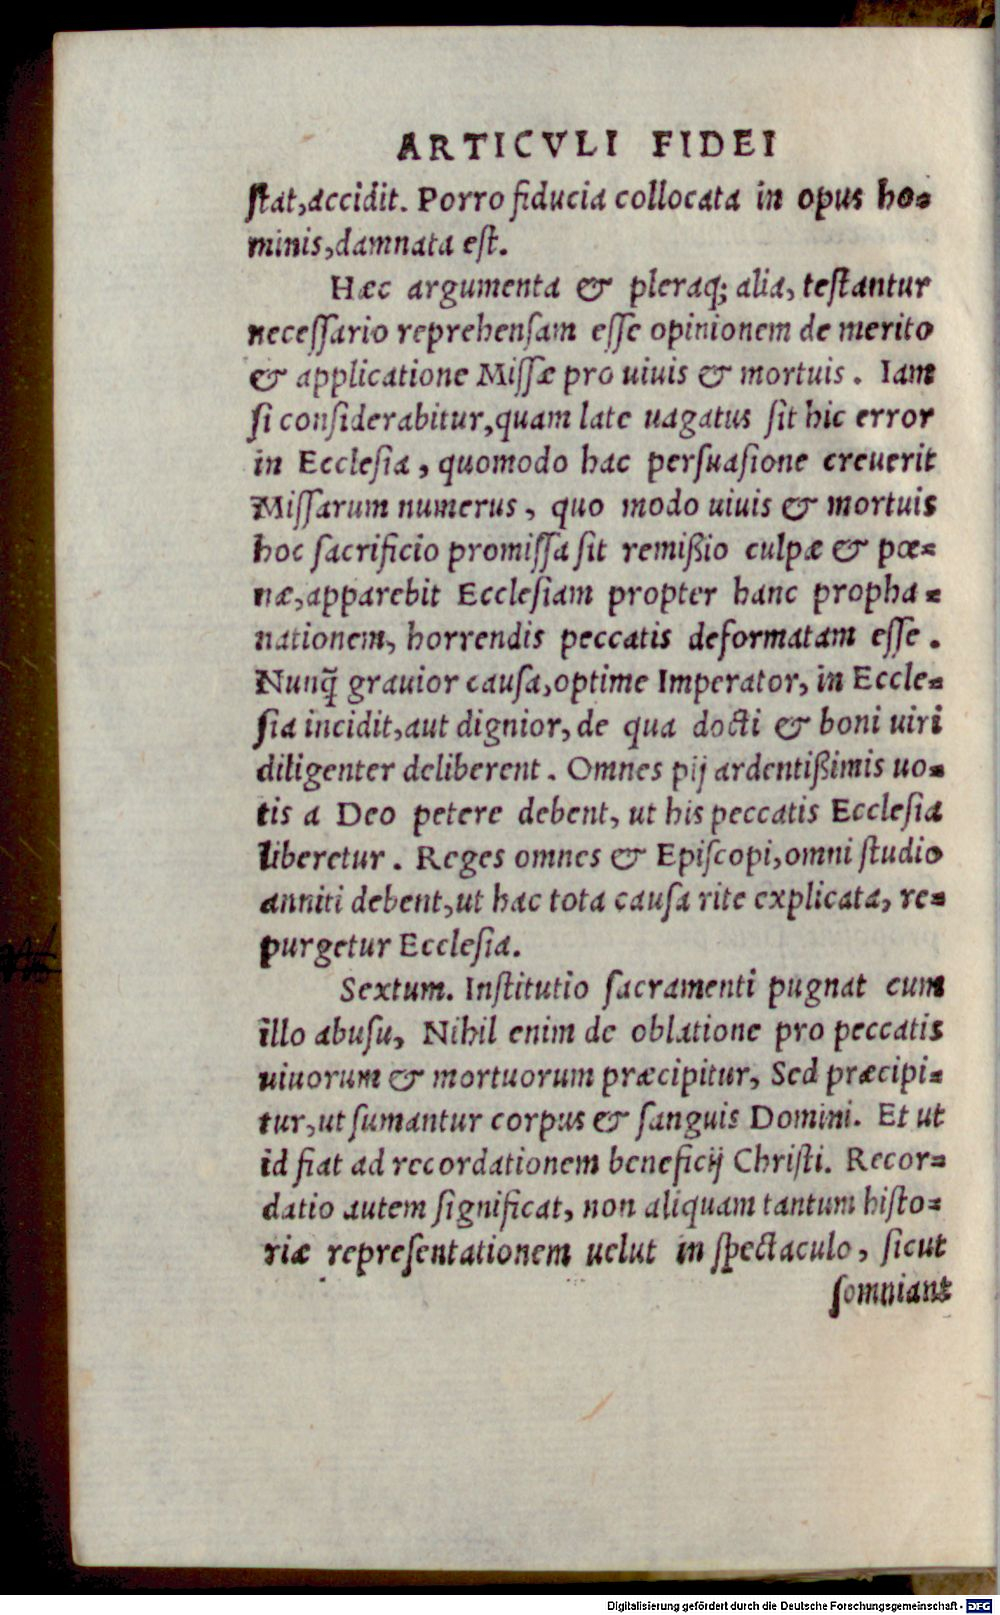 ARTICVLI FIDEI
ſtat, accidit. Porro fiducia collocata in opus ho-
minis, damnata eſt.
Hæc argumenta & pleraq; alia, teſtantur
neceſſario reprehenſam eſſe opinionem de merito
& applicatione Miſſæ pro uiuis & mortuis. Iam
ſi conſiderabitur, quam late uagatus ſit hic error
in Eccleſia, quomodo hac perſuaſione creuerit
Miſſarum numerus, quo modo uiuis & mortuis
hoc ſacrificio promiſſa ſit remißio culpæ & pœ-
næ, apparebit Eccleſiam propter hanc propha-
nationem, horrendis peccatis deformatam eſſe.
Nunq̃ grauior cauſa, optime Imperator, in Eccle-
ſia incidit, aut dignior, de qua docti & boni uiri
diligenter deliberent. Omnes pij ardentißimis uo-
tis a Deo petere debent, ut his peccatis Eccleſia
liberetur. Reges omnes & Epiſcopi, omni ſtudio
anniti debent, ut hac tota cauſa rite explicata, re-
purgetur Eccleſia.
Sextum. Inſtitutio ſacramenti pugnat cum
illo abuſu, Nihil enim de oblatione pro peccatis
uiuorum & mortuorum præcipitur, Sed præcipi-
tur, ut ſumantur corpus & ſanguis Domini. Et ut
id fiat ad recordationem beneficij Chriſti. Recor-
datio autem ſignificat, non aliquam tantum hiſto-
riæ repreſentationem uelut in ſpectaculo, ſicut
ſomniant
Digitalisierung gefördert durch die Deutsche Forschungsgemeinschaft - DFG